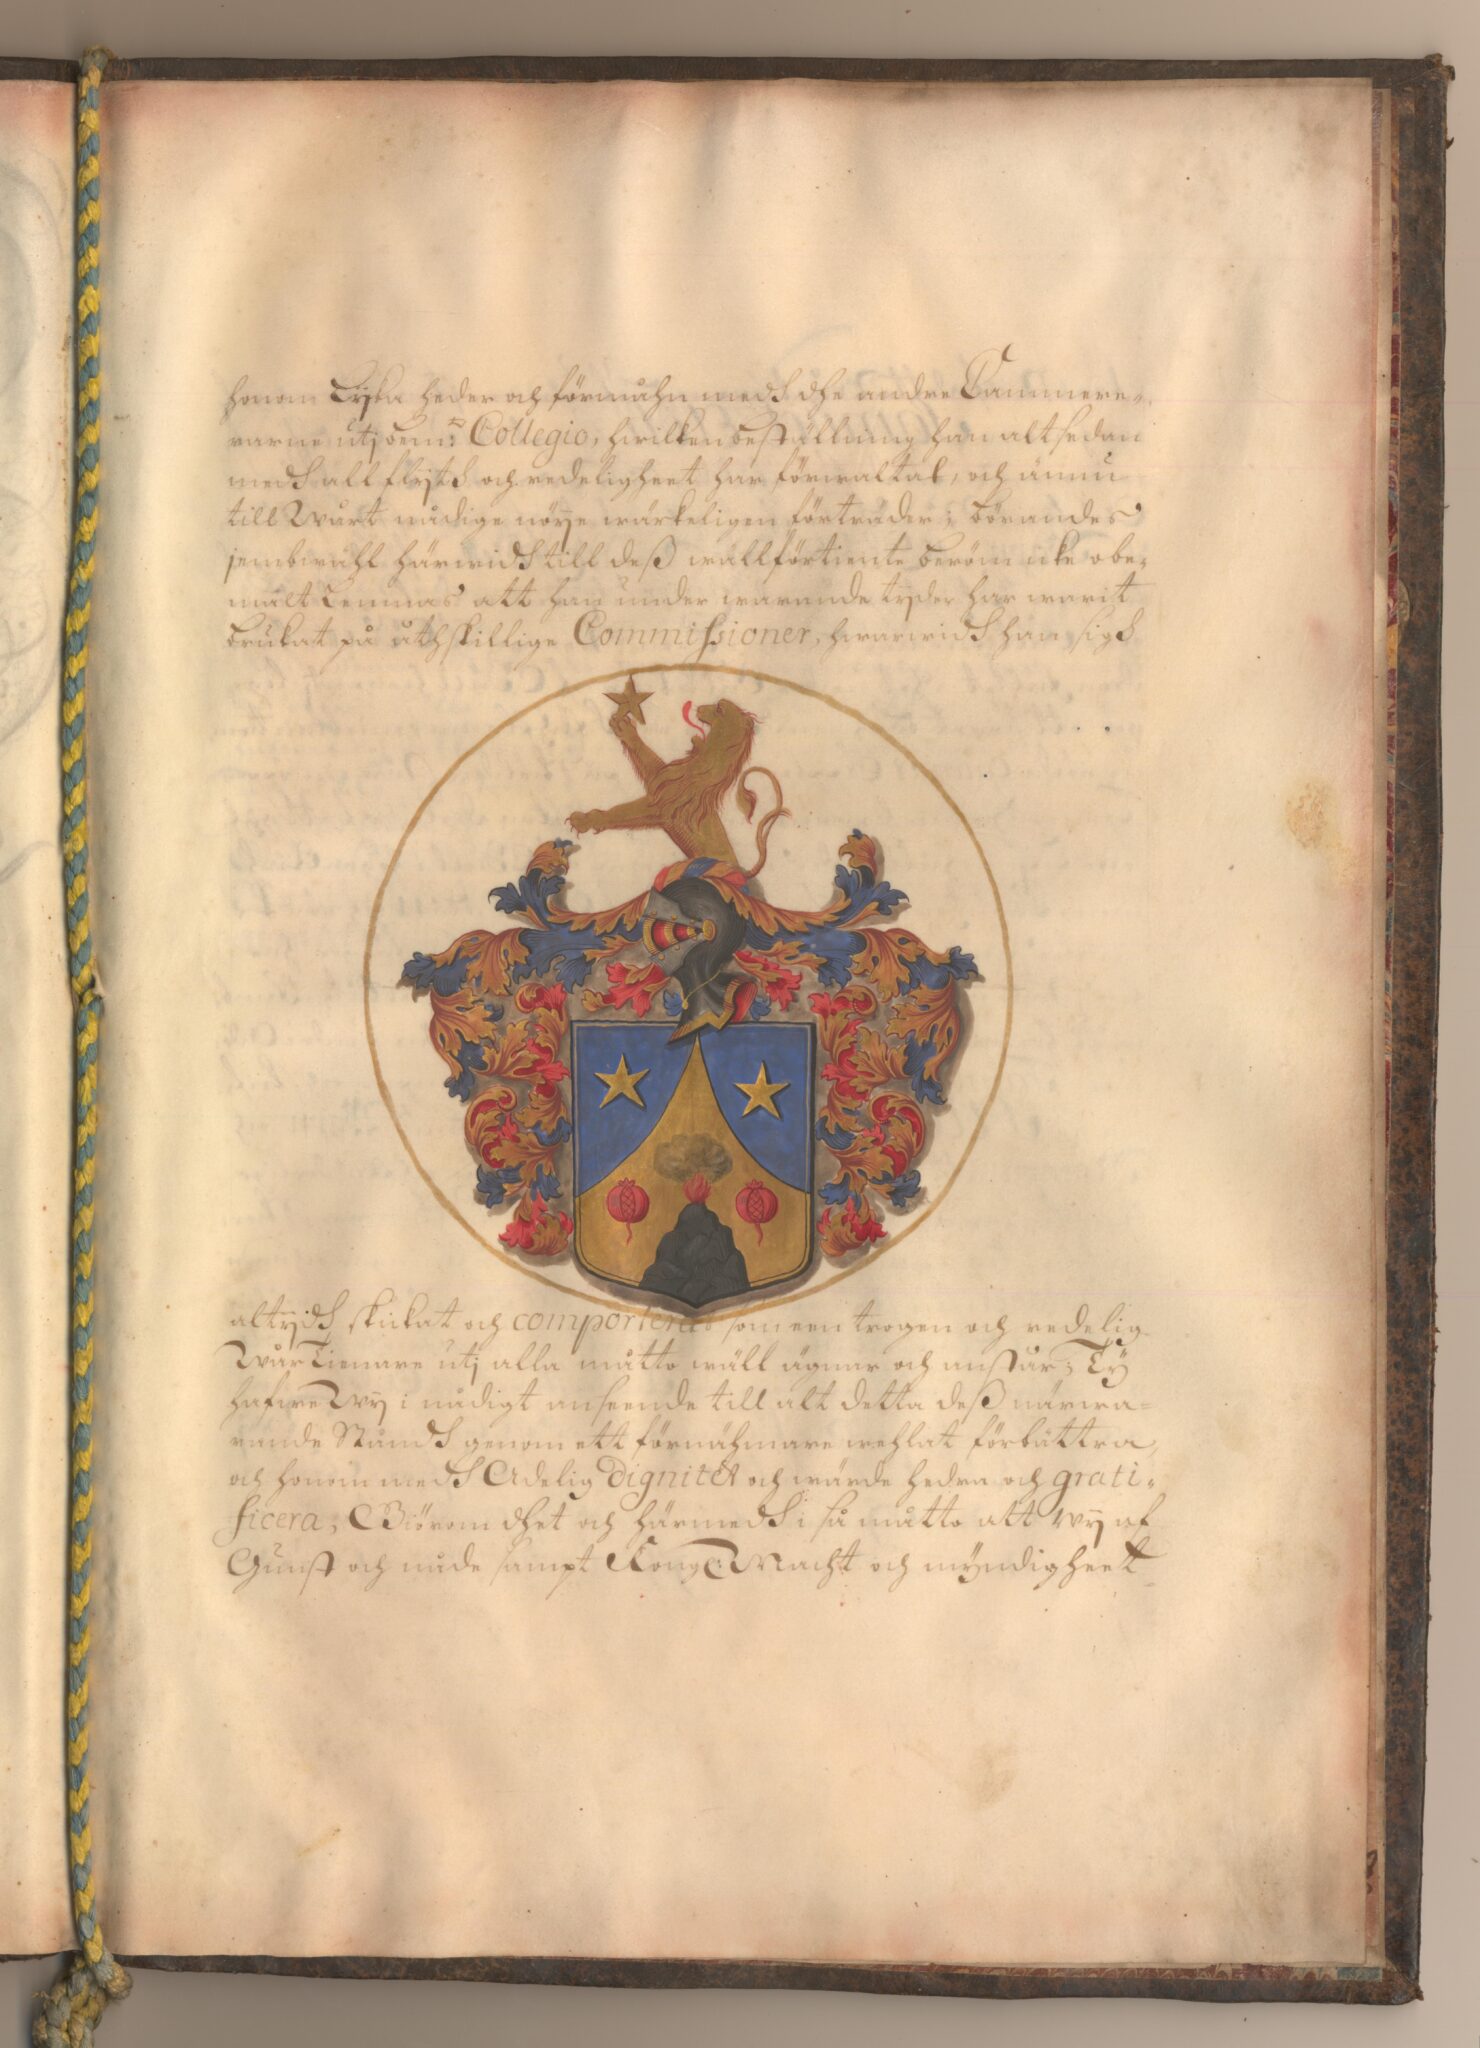 honom Lijka heder och förmåhn medh dhe andre Cammere-
rarne utj bem:te Collegio, hwilken beställning han altsedan
medh all flijth och redeligheet har förwaltat, och ännu
till Wårt nådige nöije wärkeligen förträder; Börandes
jembwähl härwidh till deß wällförtiente beröm icke obe-
mält Lemnas att han under warande tijder har warit
brukat på åthskillige Commissioner, hwarwidh han sigh
altijdh skickat och comporterat som een trogen och redelig
Wår Tienare utj alla måtto wäll ägnar och anstår; Ty
hafwe Wij i nådigt anseende till alt detta deß närwa-
rande Ståndh genom ett förnähmare wehlat förbättra,
och honom medh Adelig Dignitet och wärde hedra och grati-
ficera; Giörom dhet och härmedh i så måtto att Wij af
Gunst och nåde sampt Kongl: Macht och myndigheet